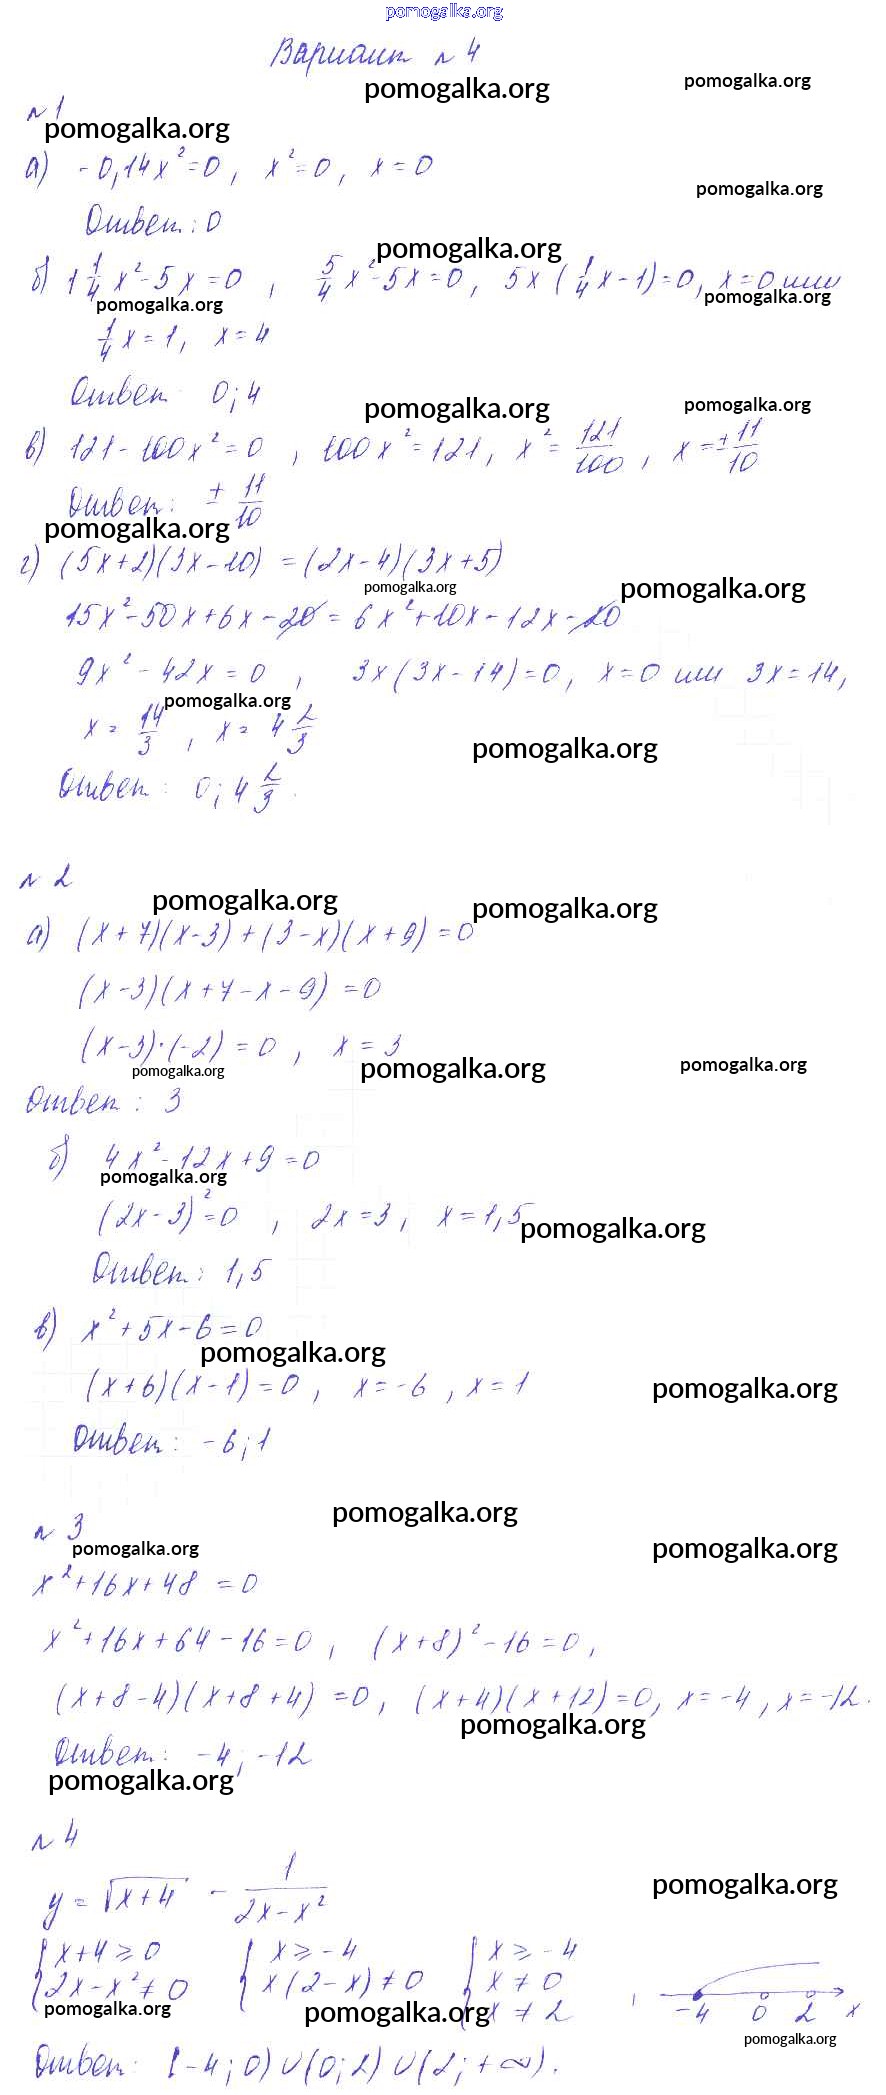 pomogalka.org
Вариант №4
pomogalka.org pomogalka.org
№1
pomogalka.org
а) -0,14x²=0, x²=0, x=0
pomogalka.org
Ответ: 0
pomogalka.org
б) 1 1/4 x²-5x=0, 5/4 x²-5x=0, 5x(1/4 x-1)=0, x=0 или
pomogalka.org pomogalka.org
1/4 x=1, x=4
Ответ 0; 4
pomogalka.org pomogalka.org
в) 121-100x²=0, 100x²=121, x²=121/100, x=±11/10
Ответ: ±11/10
pomogalka.org
г) (5x+2)(3x-10)=(2x-4)(3x+5)
pomogalka.org pomogalka.org
15x²-50x+6x-20=6x²+10x-12x-20
9x²-42x=0, 3x(3x-14)=0, x=0 или 3x=14,
pomogalka.org
x=14/3, x=4 2/3
pomogalka.org
Ответ: 0; 4 2/3.
№2
pomogalka.org pomogalka.org
а) (x+7)(x-3)+(3-x)(x+9)=0
(x-3)(x+7-x-9)=0
(x-3)·(-2)=0, x=3
pomogalka.org pomogalka.org pomogalka.org
Ответ: 3
б) 4x²-12x+9=0
pomogalka.org
(2x-3)²=0, 2x=3, x=1,5
pomogalka.org
Ответ: 1,5
в) x²+5x-6=0
pomogalka.org
(x+6)(x-1)=0, x=-6, x=1
pomogalka.org
Ответ: -6; 1
pomogalka.org
№3
pomogalka.org pomogalka.org
x²+16x+48=0
x²+16x+64-16=0, (x+8)²-16=0,
(x+8-4)(x+8+4)=0, (x+4)(x+12)=0, x=-4, x=-12.
pomogalka.org
Ответ: -4; -12
pomogalka.org
№4
pomogalka.org
y=√(x+4) - 1/(2x-x²)
{x+4≥0 {x≥-4 {x≥-4
2x-x²≠0 x(2-x)≠0 x≠0
x≠2, -4 0 2 x
pomogalka.org pomogalka.org
pomogalka.org
Ответ: [-4; 0)∪(0; 2)∪(2; +∞).